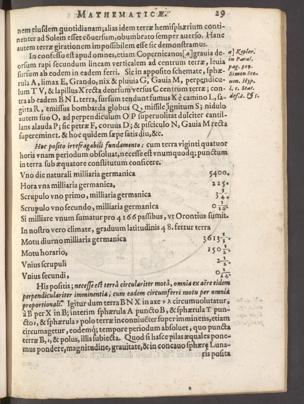 MATHEMATICÆ. 29
nem eiusdem quotidianam; alias idem terræ hemisphærium conti-
nenter ad Solem esset obversum, obumbrato semper averso. Hanc
autem terræ girationem impossibilem esse sic demonstramus.
In confesso est apud omnes, etiam Copernicanos [a] gravia de-
orsum rapi secundum lineam verticalem ad centrum terræ, levia
sursum ab eodem in eadem ferri. Sic in apposito schemate, sphæ-
rula A, limax E, Grando, nix & pluvia G, Gavia M, perpendicu-
lum T V, & lapillus X recta deorsum versus C centrum terræ; con-
tra ab eadem B N I, terra, sursum tendunt fumus K è camino L, sa-
gitta R, emissus bombarda globus Q, missile ignitum S; nidulo
autem suo O, ad perpendiculum O P superuolitat dulciter cantil-
lans alauda P; sic petræ F, coruus D; & pisciculo N, Gauia M recta
supereminent. & hoc quidem sæpe satis diu, &c.
[a] Kepler.
in Paral.
pag.
Simon Ste-
uin. Hyp.
l. 1. Stat.
Hoc posito irrefragabili fundamento: cum terra viginti quatuor
horis vnam periodum absoluat, necesse est vnumquodq; punctum
in terra sub æquatore constitutum conficere.
Vno die naturali milliaria germanica 5400.
Hora vna milliaria, germanica 225.
Scrupulo vno primo, milliaria germanica 3
Scrupulo vno secundo, milliaria germanica 0
Si milliare vnum sumatur pro 4166 passibus, vt Orontius sumit.
In nostro vero climate, graduum latitudinis 48. fertur terra
Motu diurno milliaria germanica 3613
Motu horario, 150
Vnius scrupuli 2
Vnius secundi, 0
His positis; necesse est terrâ circulariter motâ, omnia ex aëre eidem
perpendiculariter imminentia, cum eadem circumferri motu per omnia
proportionali. Igitur dum terra B N X in axe circumuoluatur,
à B per X in B; interim sphærula A puncto B, & sphærula T pun-
cto, & sphærula polo terræ inconniucter supereminentis, etiam
circumagetur, eodemq; tempore periodum absoluet, quo puncta
terræ B, & polus, illis subiecta. Quod si hasce pilas æquales pone-
mus pondere, magnitudine, grauitate, & in concauo sphæræ Luna-
ris posita